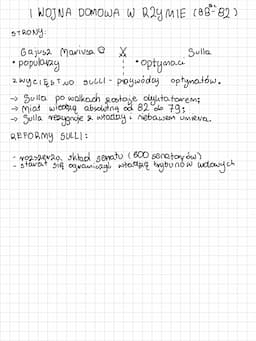 I WOJNA DOMOWA W RZYMIE (88-82)
STRONY:
Gajusz Mariusz X Sulla
• popularzy • optymaci
ZWYCIĘSTWO SULLI - przywódcy optymatów.
→ Sulla po walkach zostaje dyktatorem;
→ Miał władzę absolutną od 82 do 79;
→ Sulla rezygnuje z władzy i niebawem umiera.
REFORMY SULLI:
- rozszerza skład senatu (600 senatorów)
- starał się ograniczyć władzę trybunów ludowych